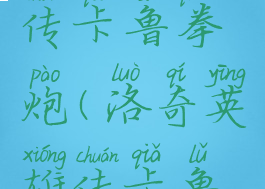 传卡鲁拳
pào luò qí yīng
炮(洛奇英
xióng chuán qiǎ lǔ
雄传卡鲁